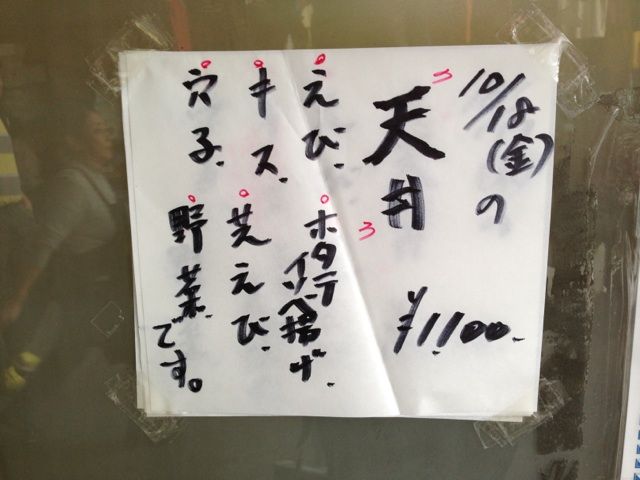 10/18(金)の
天丼
¥1,100.
えび.
キス.
穴子.
ホタテ
イソベ揚げ.
芝えび.
野菜です。